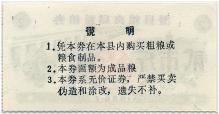 说明
1.凭本券在本县内购买粗粮或
粮食制品。
2.本券面额为成品粮
3.本券系无价证券，严禁买卖
伪造和涂改，遗失不补。